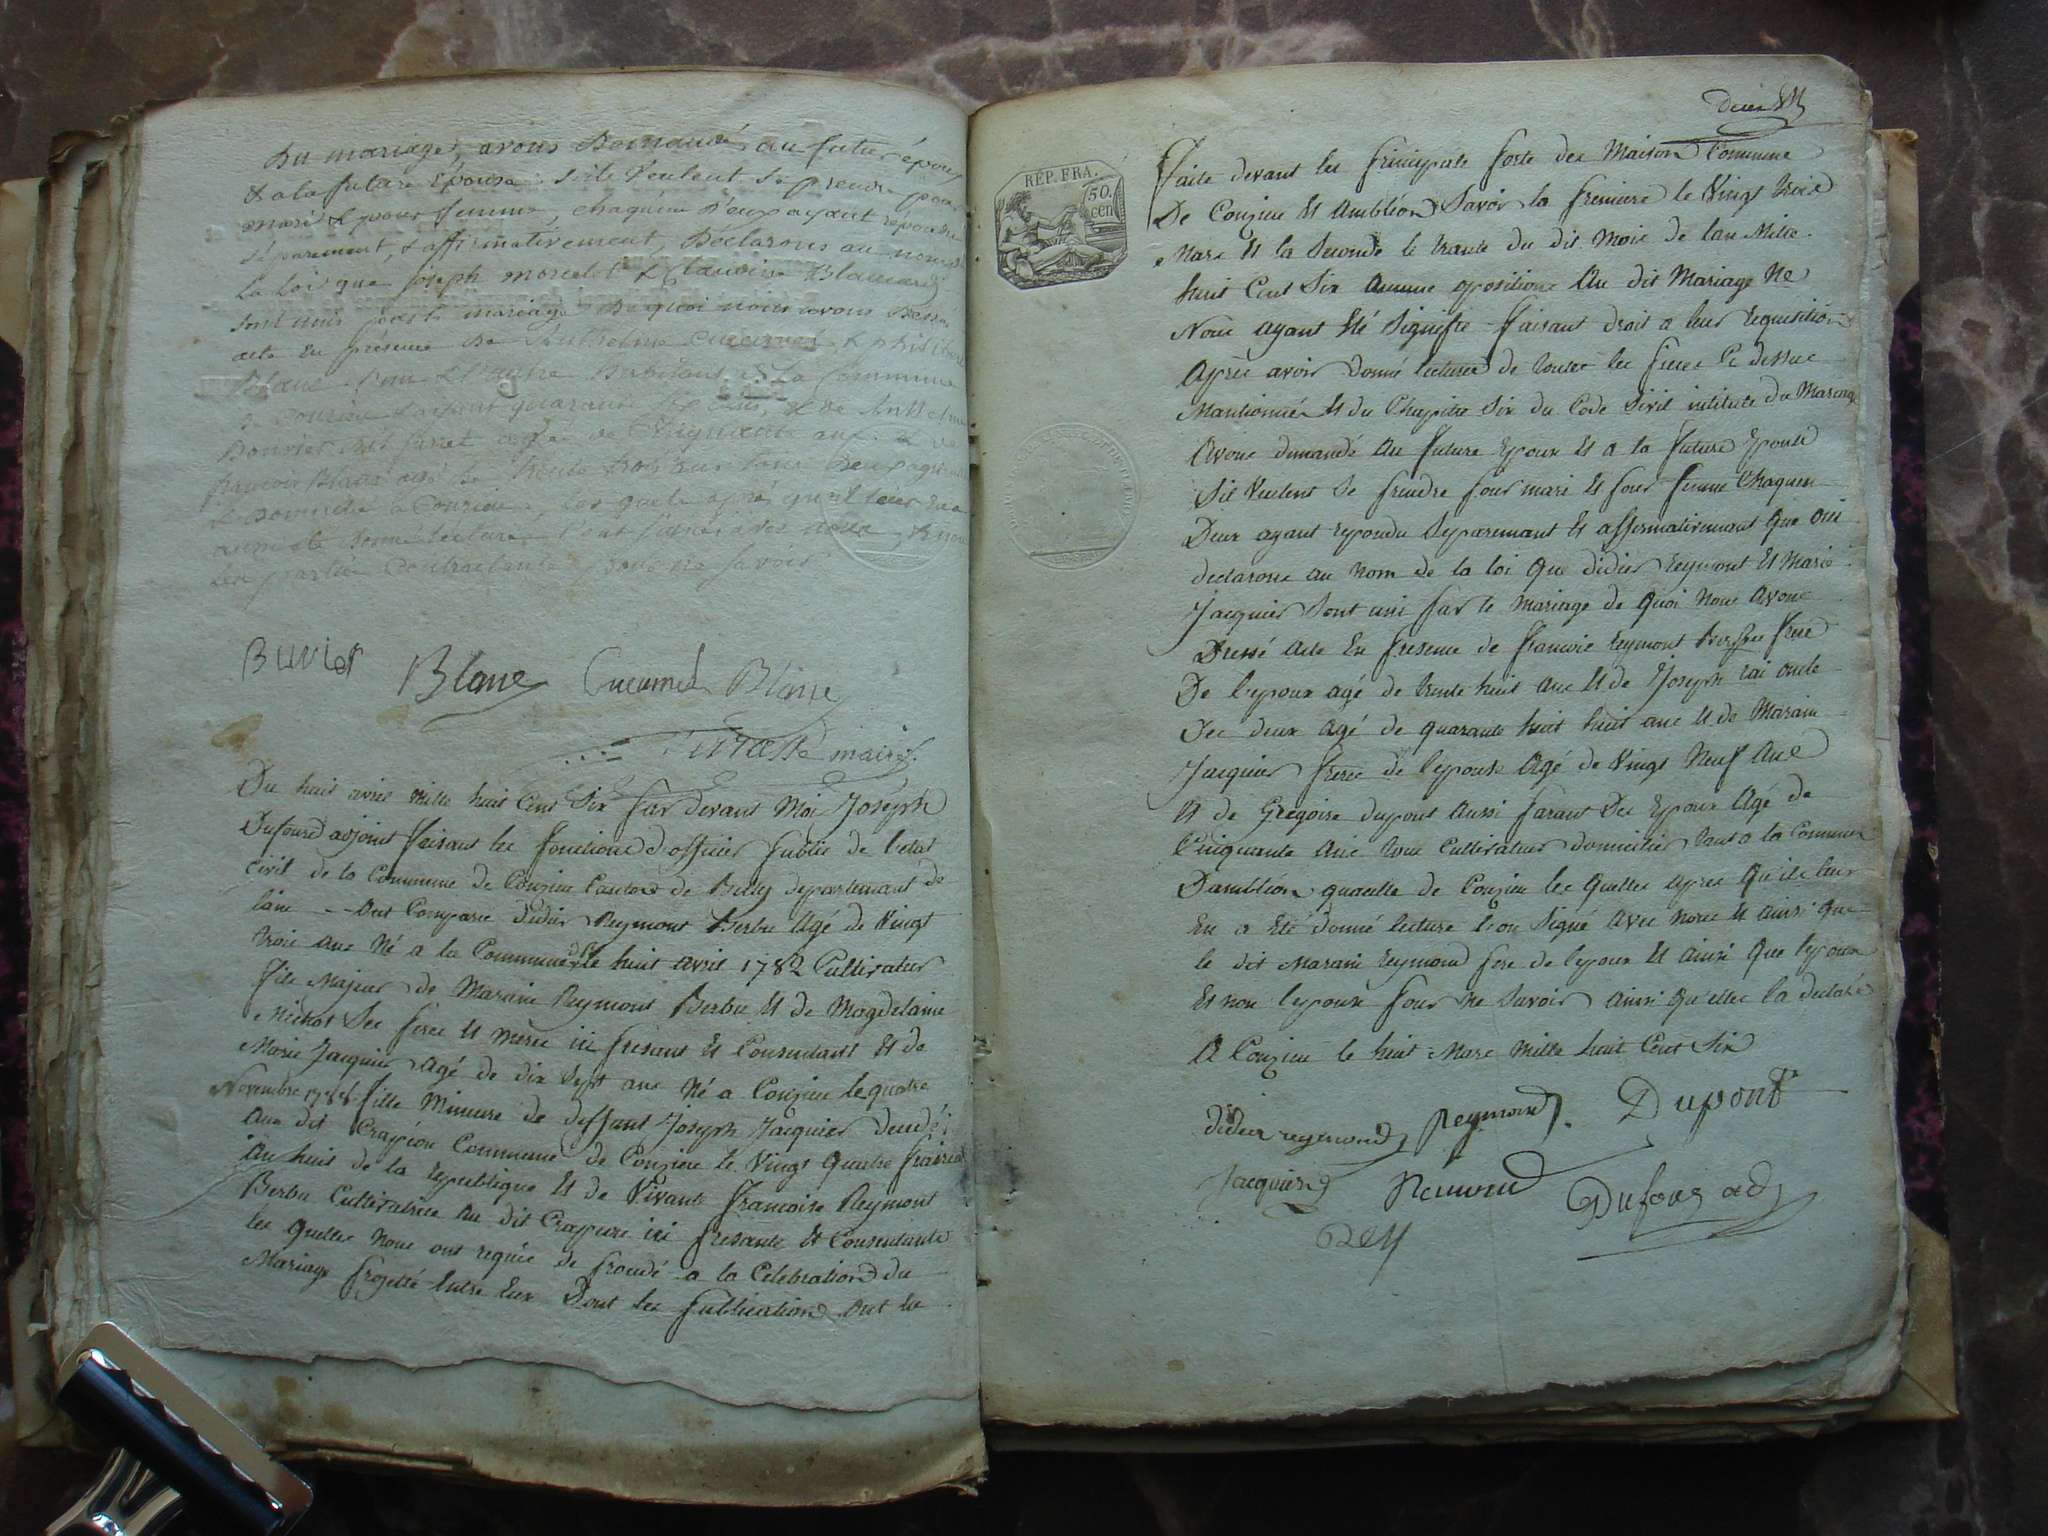 Du mariage, avons Demandé au futur époux
& a la future Epouse sils veulent se prendre pour
mari & pour femme, chaquun d'eux ayant répondu
séparement, & affirmativement, Déclarons au nom de
La Loi que joseph morcel & Claudine Blanc
sont unis par le mariage De quoi nous avons Dressé
acte En presence De Anthelme Cucumel &
Blanc L'un & l'autre habitant La Commune
agé de Cinquante ans & de
francois Blanc agé de trente trois ans tous
& Domicilié a Conzieu, les quels après qu'il leur en a
aussi été Donné lecture, l'ont signé avec nous, & non
les parties Contractantes pour ne savoir
Buvier Blanc Cucumel Blanc
maire
Du huit avril mille huit Cent Six par devant Moi Joseph
Dufourd adjoint faisant les fonctions d'officier public de l'etat
civil de la Commune de Conzieu Canton de Belley departemant de
lain ont Comparu didier Reymont Berbu Agé de vingt
trois ans Né a la Commune le huit avril 1782 Cultivatur
fils Majeur de Marain Reymont Berbu et de Magdelaine
Michot Ses pere et Mere ici presant et Consentant et de
Marie Jacquier Agé de dix Sept ans Né a Conzieu le quatre
Novembre 1788 fille Mineure de deffunt Joseph Jacquier decedé
au dit Crapéou Commune de Conzieu le vingt quatre prairial
an huit de la republique et de vivante Francoise Reymont
Berbu Cultivatrice au dit Crapeou ici presante et Consentante
les quelles nous ont requis de procedé a la Celebration du
Mariage projetté Entre Eux Dont les publications ont Eté
REP. FRA.
50.
cen
faite devant les principale porte des Maison Commune
De Conzieu et Ambléon Savoir la premiere le vingt trois
Mars et la Seconde le trante du dit Mois de lan Mille
huit Cent Six aucune opositions Au dit Mariage Ne
Nous ayant Eté Signifié faisant droit a leur requisition
Après avoir Donné lecture de toutes les pieces Ci dessus
Mantionnées et du Chapitre Six du Code Sivil intitulé du Mariage
Avons demandé au future Epoux et a la future Epouse
Sil veulent se prendre pour mari et pour femme Chaquen
Deux ayant repondu Separemant et affirmativemant que oui
declarons au Nom de la loi que didier Reymont et Marie
Jacquier Sont uni par le mariage de quoi Nous avons
Dressé acte En presence de francois reymont frere
De l'epoux agé de trante huit ans et de Joseph rai oncle
Des deux agé de quarante huit huit ans et de Marain
Jacquier frere de lepouse Agé de vingt Neuf ans
et de Gregoire dupont aussi parant Des Epoux Agé de
Cinquante ans tous Cultivatur domicilier tant a la Commune
Dambléon quaelle de Conzieu les quelles apres qu'ils leur
En a Eté donné lecture l'on Signé avec Nous et ainsi que
le dit Marain reymond pere de lepoux et ainsi que lepoux
et non lepouse pour Ne Savoir ainsi qu'elle la declaré
A Conzieu le huit Mars Mille huit Cent Six
didier reymond Reymond Dupont
Jacquier Reimond Dufour adj
Rey